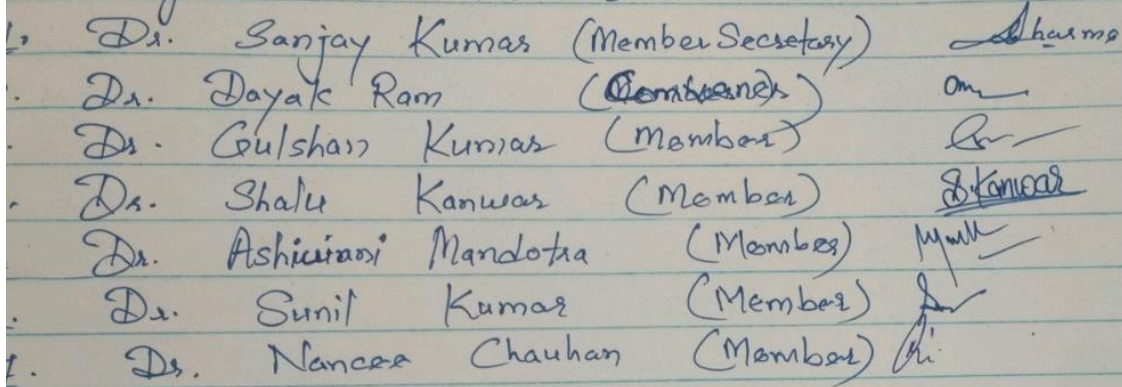 Dr. Sanjay Kumar (Member Secretary) Sharma
Dr. Dayak Ram
Dr. Gulshan Kumar (Member)
Dr. Shalu Kanwar (Member) S.Kanwar
Dr. Mandotra (Member)
Dr. Sunil Kumar (Member)
Dr. Nancee Chauhan (Member)